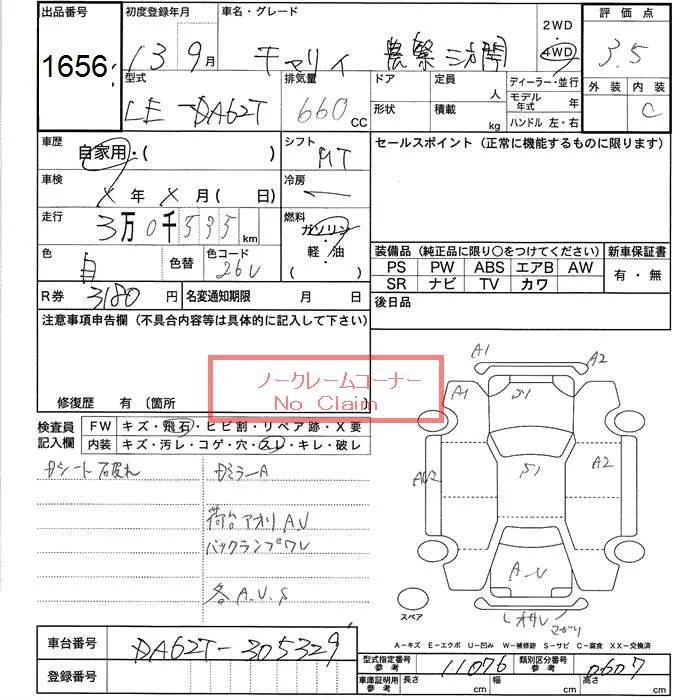 出品番号 初度登録年月 車名・グレード 2WD 評価点
1656 13 9月 キャリイ 農繁 三方開 4WD 3.5
型式 排気量 ドア 定員 人 ディーラー・並行 外装 内装
LE-DA62T 660 CC 形状 積載 kg モデル年式 年 C
ハンドル 左・右
車歴 自家用・( ) シフト MT セールスポイント(正常に機能するものに限ります)
車検 X 年 X 月 ( 日) 冷房
走行 3万0千535km 燃料 ガソリン・軽・油
装備品(純正品に限り○をつけてください) 新車保証書
色 白 色替 色コード 26U PS PW ABS エアB AW 有・無
SR ナビ TV カワ
R券 3180 円 名変通知期限 月 日 後日品
注意事項申告欄(不具合内容等は具体的に記入して下さい)
ノークレームコーナー
No Claim
修復歴 有〔箇所
A1 A2
A1 S1
検査員記入欄 FW キズ・飛石・ヒビ割・リペア跡・X要
内装 キズ・汚レ・コゲ・穴・スレ・キレ・破レ
S1 A2
シート破れ ミラーA
荷台アオリAU
バックランプワレ
A-U
各A.U.S
スペア
マガリ
A-キズ E-エクボ U-凹み W-補修跡 S-サビ C-腐食 XX-交換済
車台番号 DA62T-305329
型式指定番号 参考 11076 類別区分番号 参考 0607
登録番号 車庫証明用 参考 長さ cm 幅 cm 高さ cm